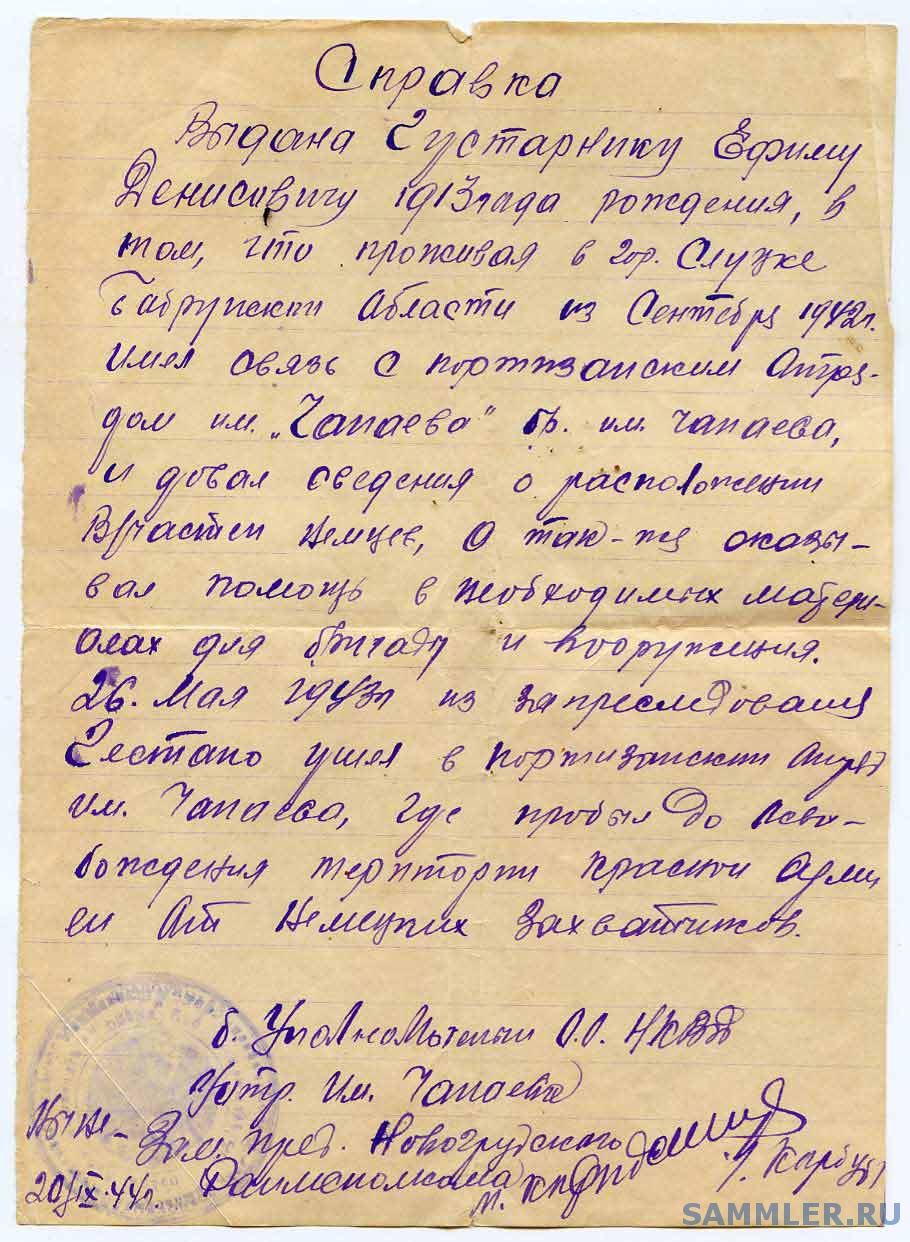 Справка
Выдана Густарнику Ефиму
Денисовичу 1913 года рождения, в
том, что проживая в гор. Слуцке
Бабруйской Области из Сентября 1942г.
имел связь с портизанским Атря-
дом им. „Чапаева" бр. им. Чапаева,
и довал сведения о расположении
В/частей Немцев, А так-же оказы-
вал помощь в необходимых матери-
олах для бригады и вооружения.
26. Мая 1943г из за преследования
Гестапо ушел в портизанский Атряд
им. Чапаева, где пробыл до Осво-
бождения територии Красной Арми
ей От Немецких Захватчиков.
б. Уполномоченый О.О. НКВД
Им. Чапаева
Ныне -
Зам. Пред. Новогрудского
20/IX.44г. Раиисполкома
SAMMLER.RU